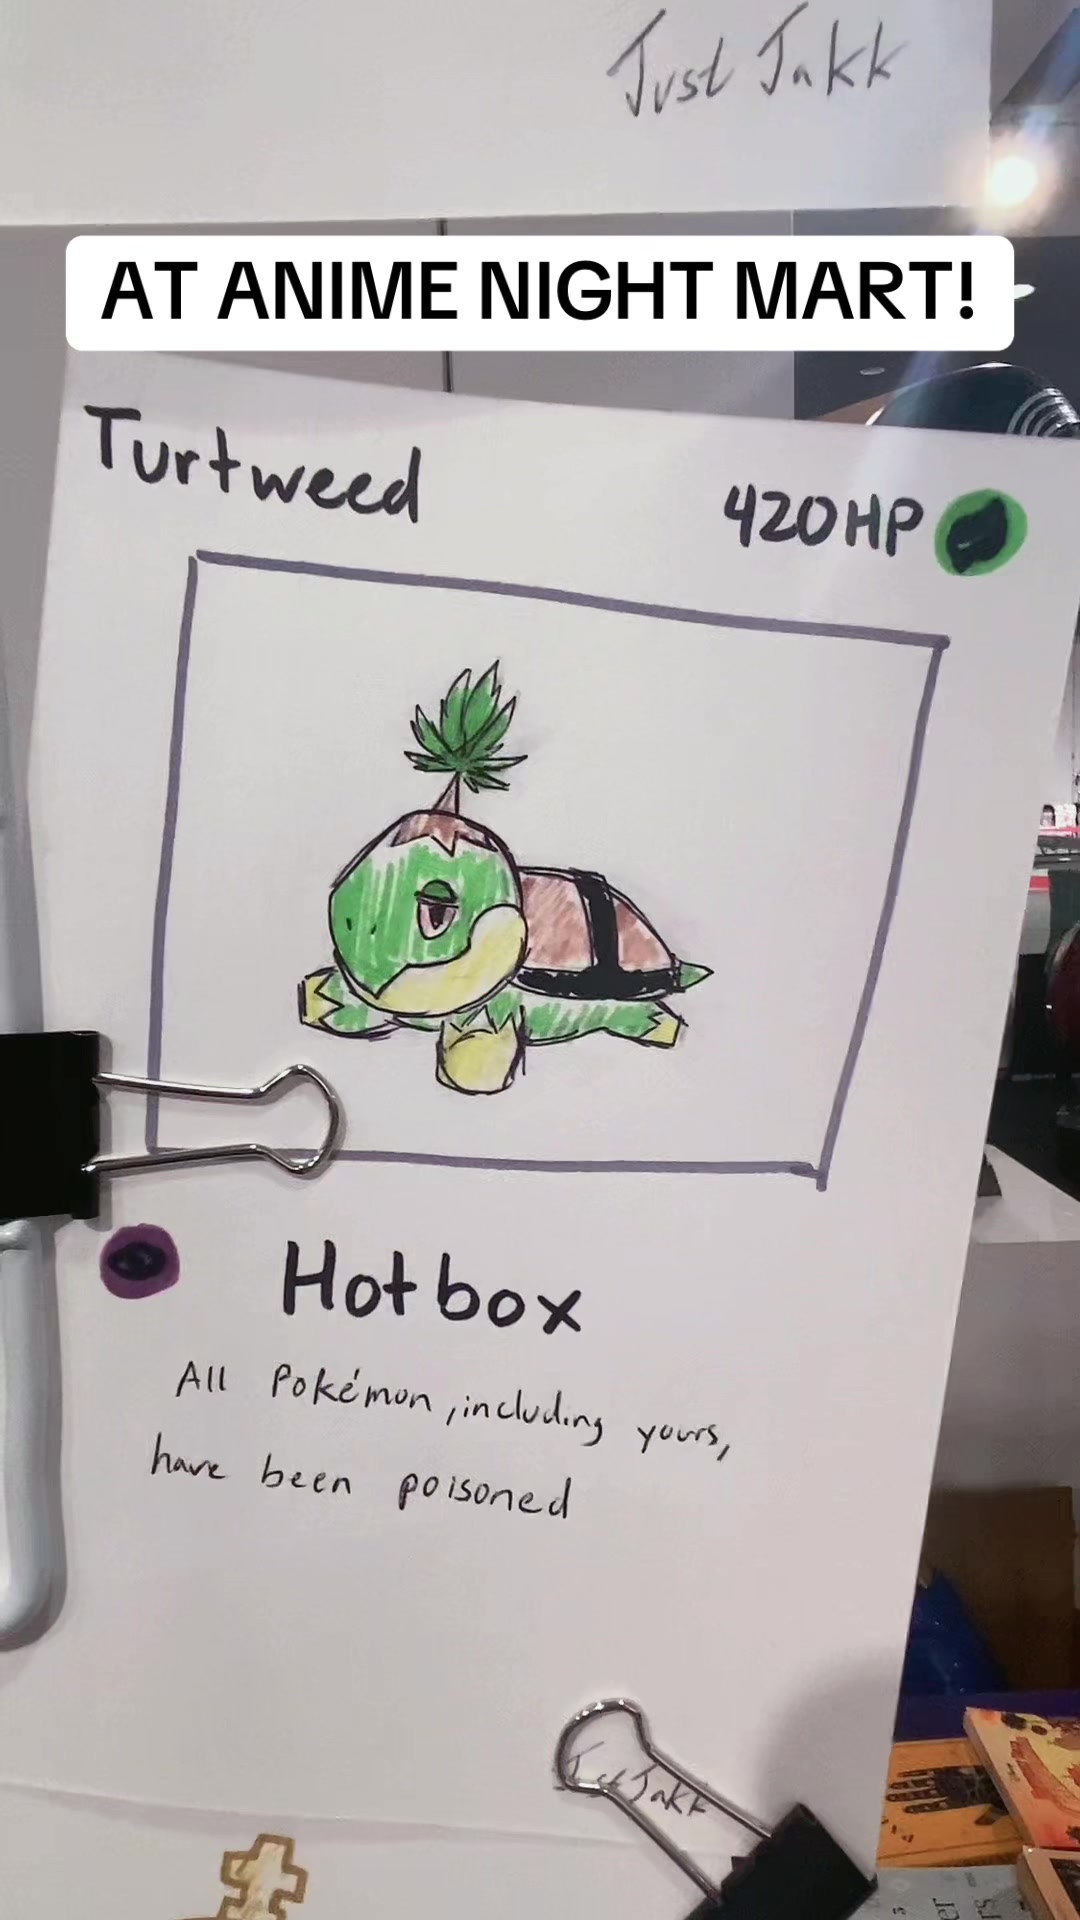 Just Jakk
AT ANIME NIGHT MART!
Turtweed
420HP
Hotbox
All Pokémon, including yours,
have been poisoned
Just Jakk